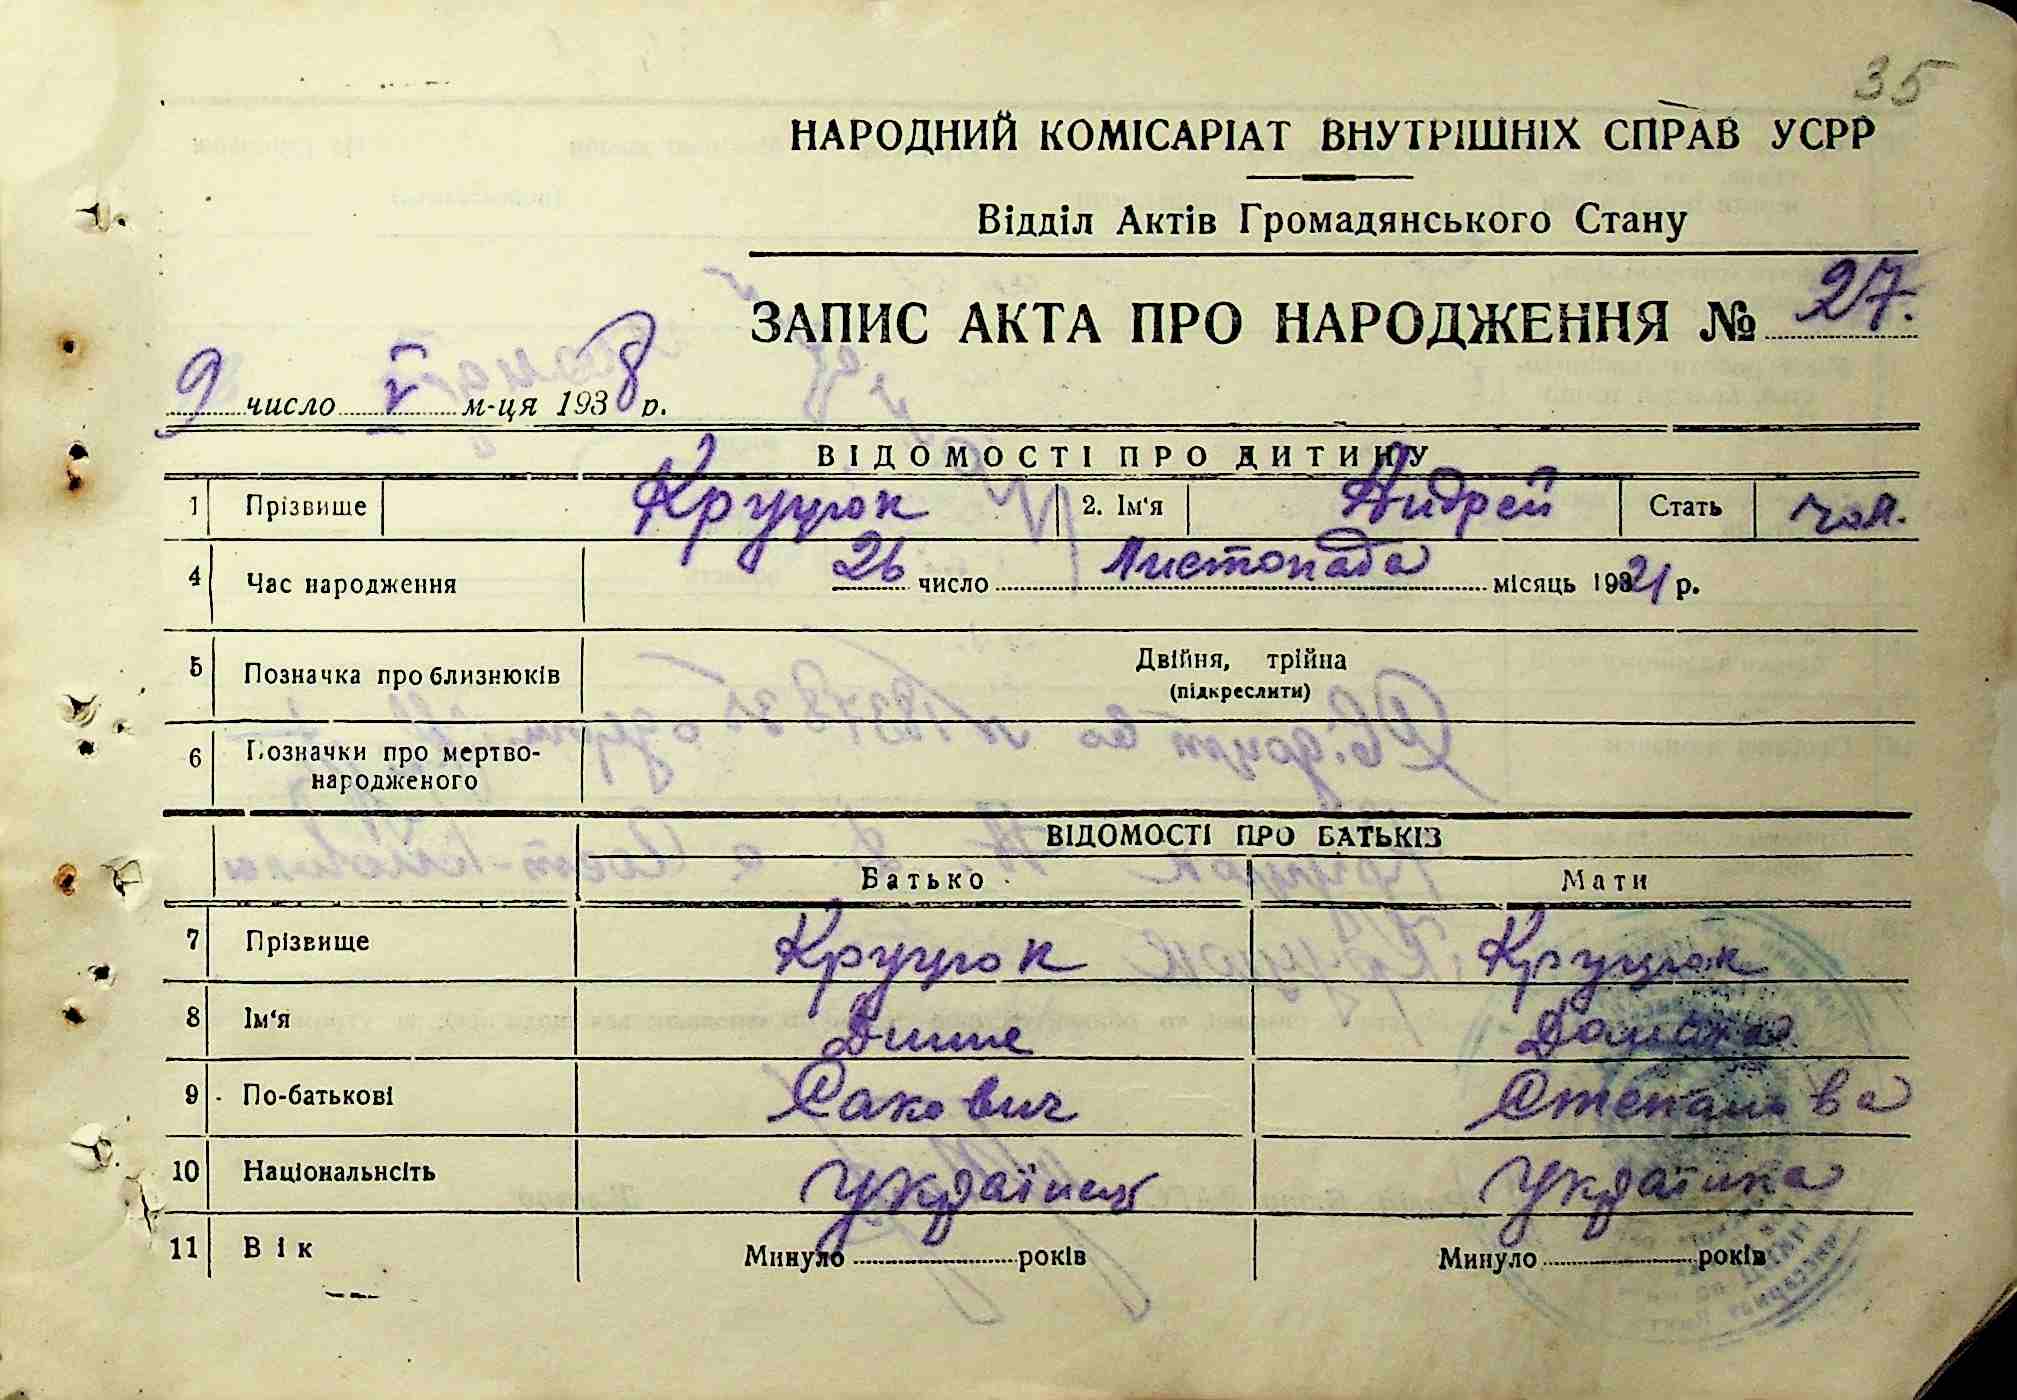 35
НАРОДНИЙ КОМІСАРІАТ ВНУТРІШНІХ СПРАВ УСРР
Відділ Актів Громадянського Стану
ЗАПИС АКТА ПРО НАРОДЖЕННЯ № 27.
9 число V м-ця 1938 р.
ВІДОМОСТІ ПРО ДИТИНУ
1 Прізвище Круцюк 2. Ім'я Андрей Стать чол.
4 Час народження 26 число Листопада місяць 1921 р.
5 Позначка про близнюків Двійня, трійна
(підкреслити)
6 Позначки про мертво-
народженого
ВІДОМОСТІ ПРО БАТЬКІВ
Батько Мати
7 Прізвище Круцюк Круцюк
8 Ім'я
9 По-батькові Сакович Степанова
10 Національнсіть Українець Українка
11 Вік Минуло років Минуло років